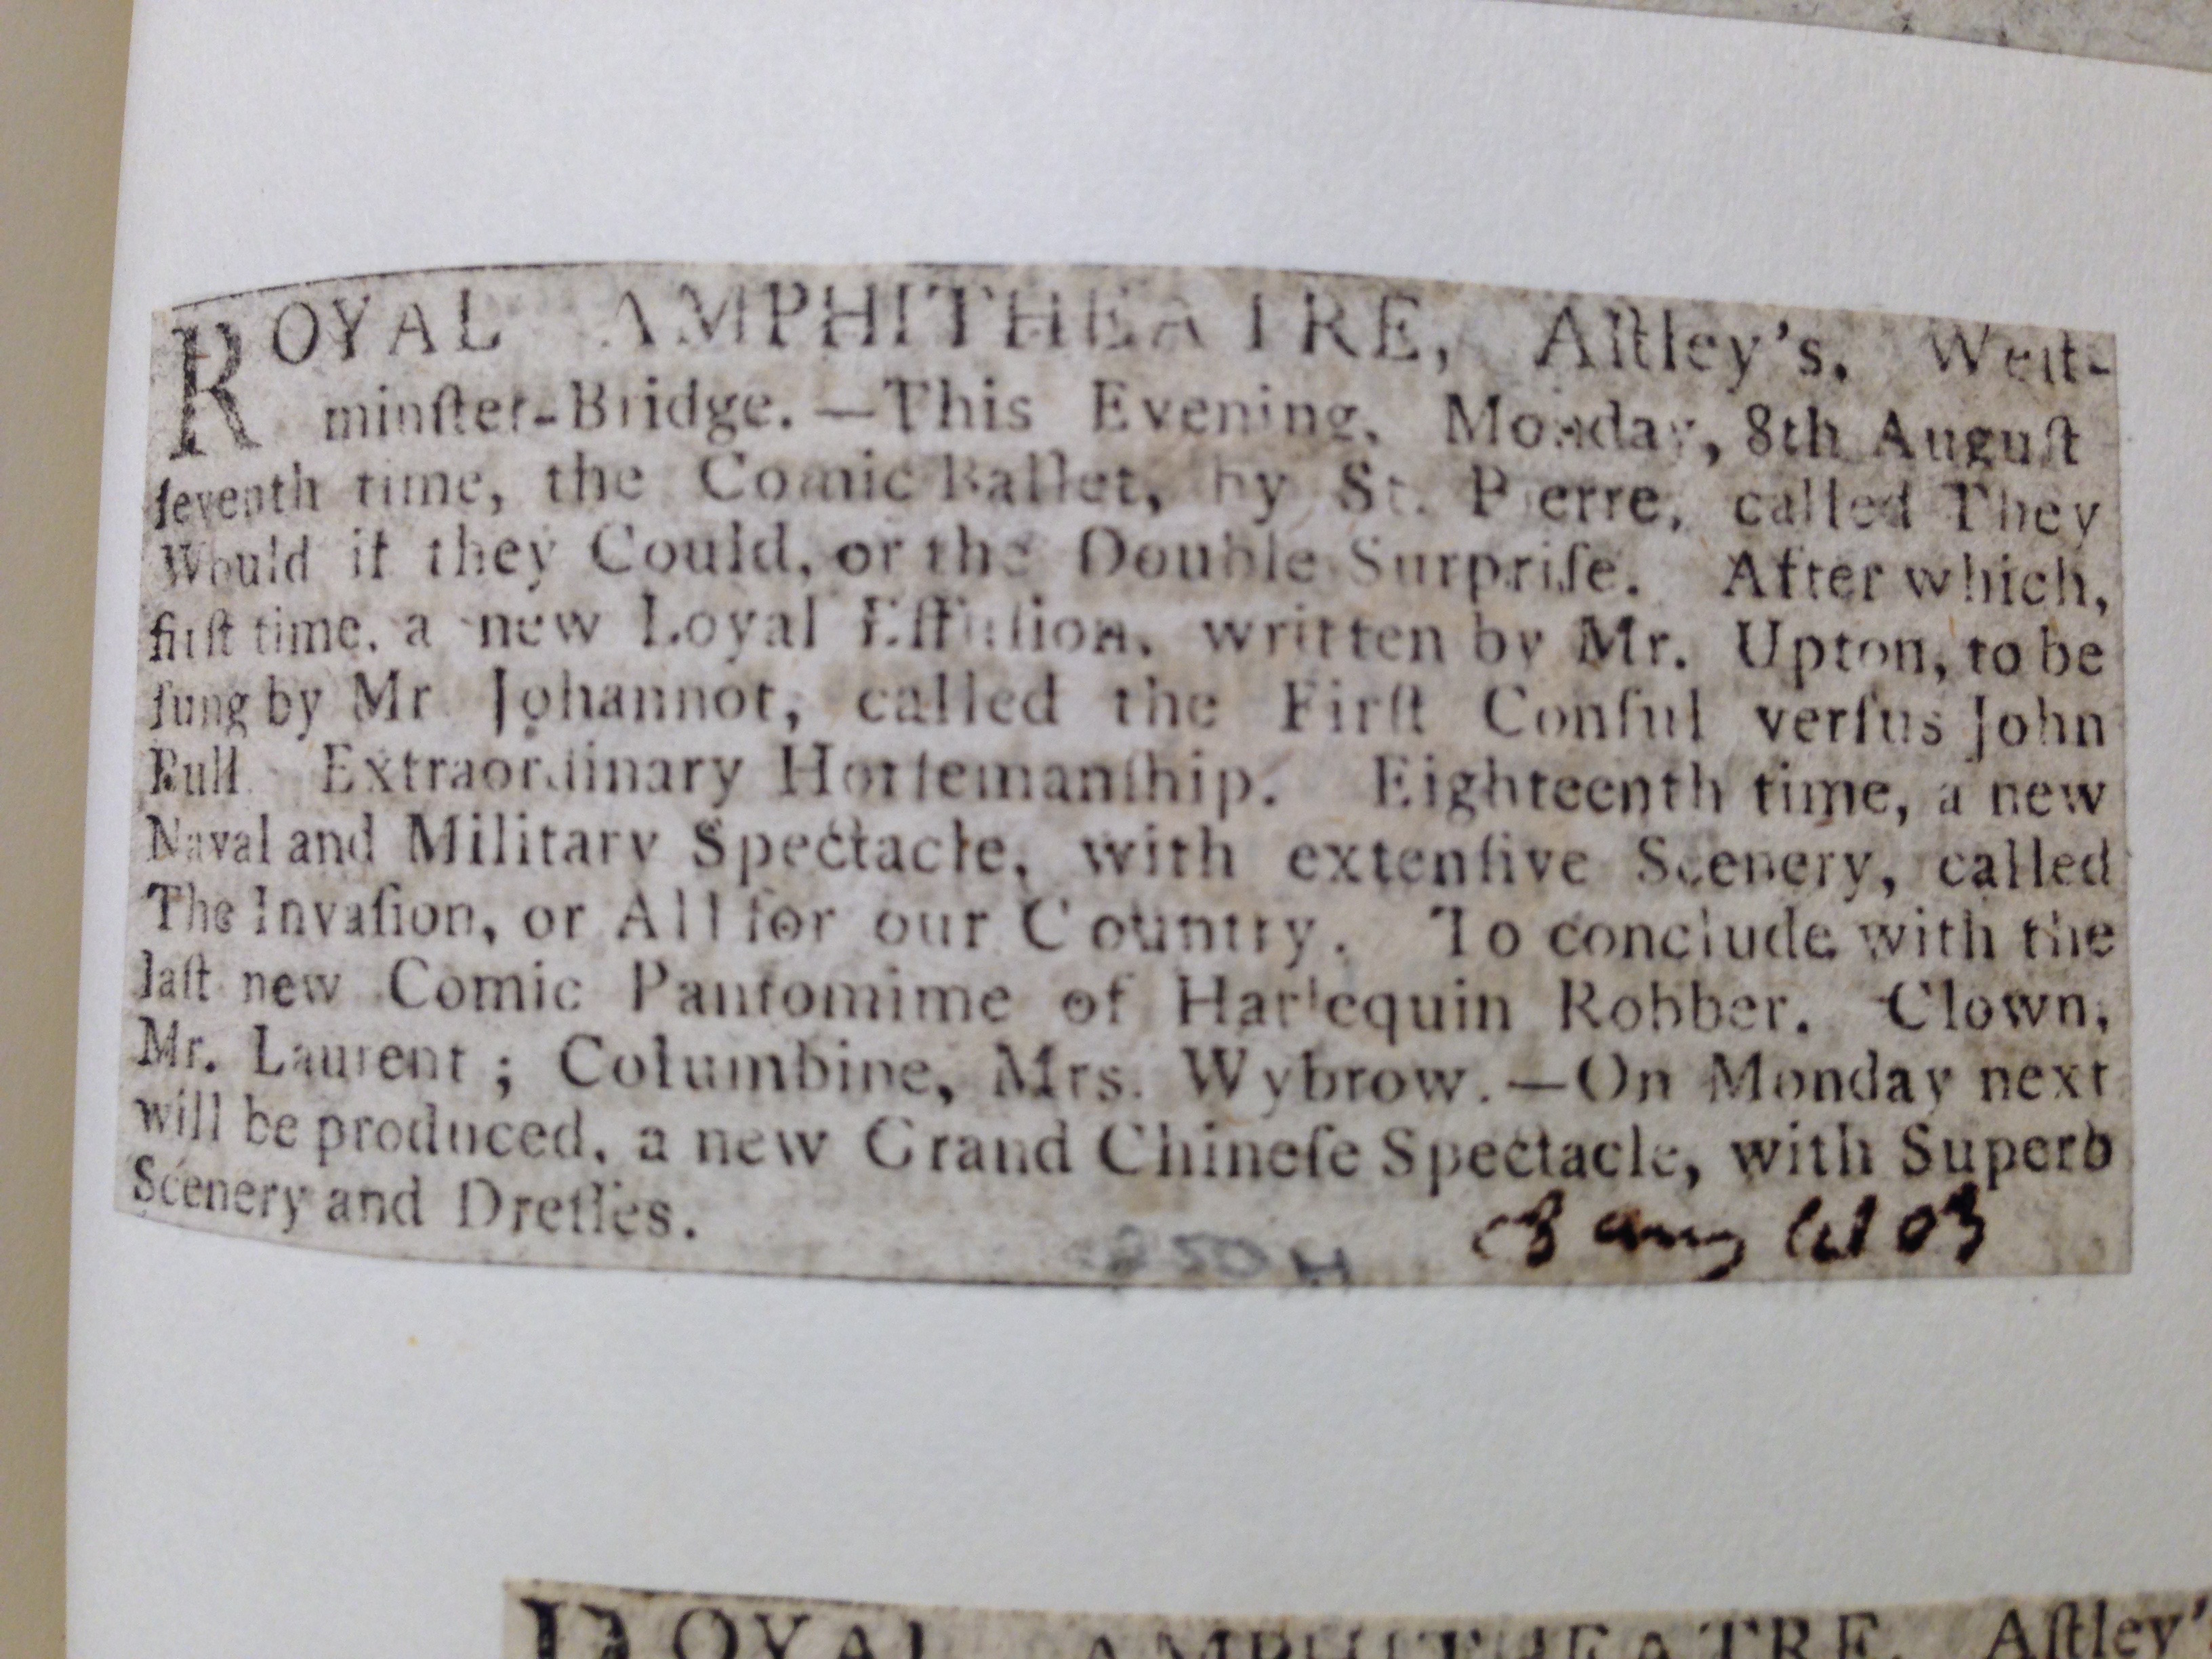 ROYAL AMPHITHEATRE, Aſtley's, Weſt-
minſter-Bridge.—This Evening, Monday, 8th Auguſt
ſeventh time, the Comic Ballet, by St. Pierre, called They
Would if they Could, or the Double Surpriſe. After which,
firſt time, a new Loyal Effuſion, written by Mr. Upton, to be
ſung by Mr Johannot, called the Firſt Conſul verſus John
Bull. Extraordinary Horſemanſhip. Eighteenth time, a new
Naval and Military Spectacle, with extenſive Scenery, called
The Invaſion, or All for our Country. To conclude with the
laſt new Comic Pantomime of Harlequin Robber. Clown,
Mr. Laurent; Columbine, Mrs. Wybrow.—On Monday next
will be produced, a new Grand Chineſe Spectacle, with Superb
Scenery and Dreſſes.
8 aug 1803
ROYAL AMPHITHEATRE Aſtley'